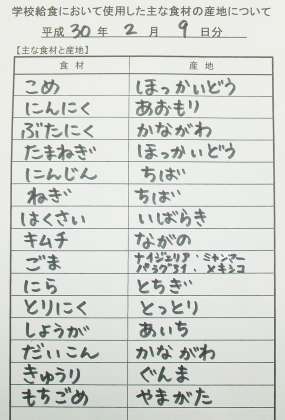 学校給食において使用した主な食材の産地について
平成 30 年 2 月 9 日分
【主な食材と産地】
食材 産地
こめ ほっかいどう
にんにく あおもり
ぶたにく かながわ
たまねぎ ほっかいどう
にんじん ちば
ねぎ ちば
はくさい いばらき
キムチ ながの
ごま ナイジェリア・ミャンマー
パラグアイ・メキシコ
にら とちぎ
とりにく とっとり
しょうが あいち
だいこん かながわ
きゅうり ぐんま
もちごめ やまがた